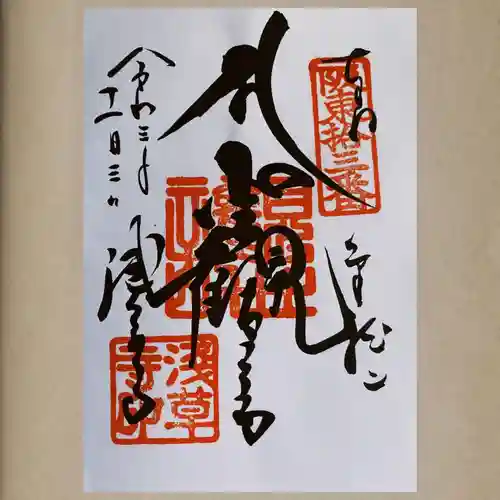 坂東拾三番
金龍山
聖観世音
令和三年
十一月三日
浅草寺
浅草寺印